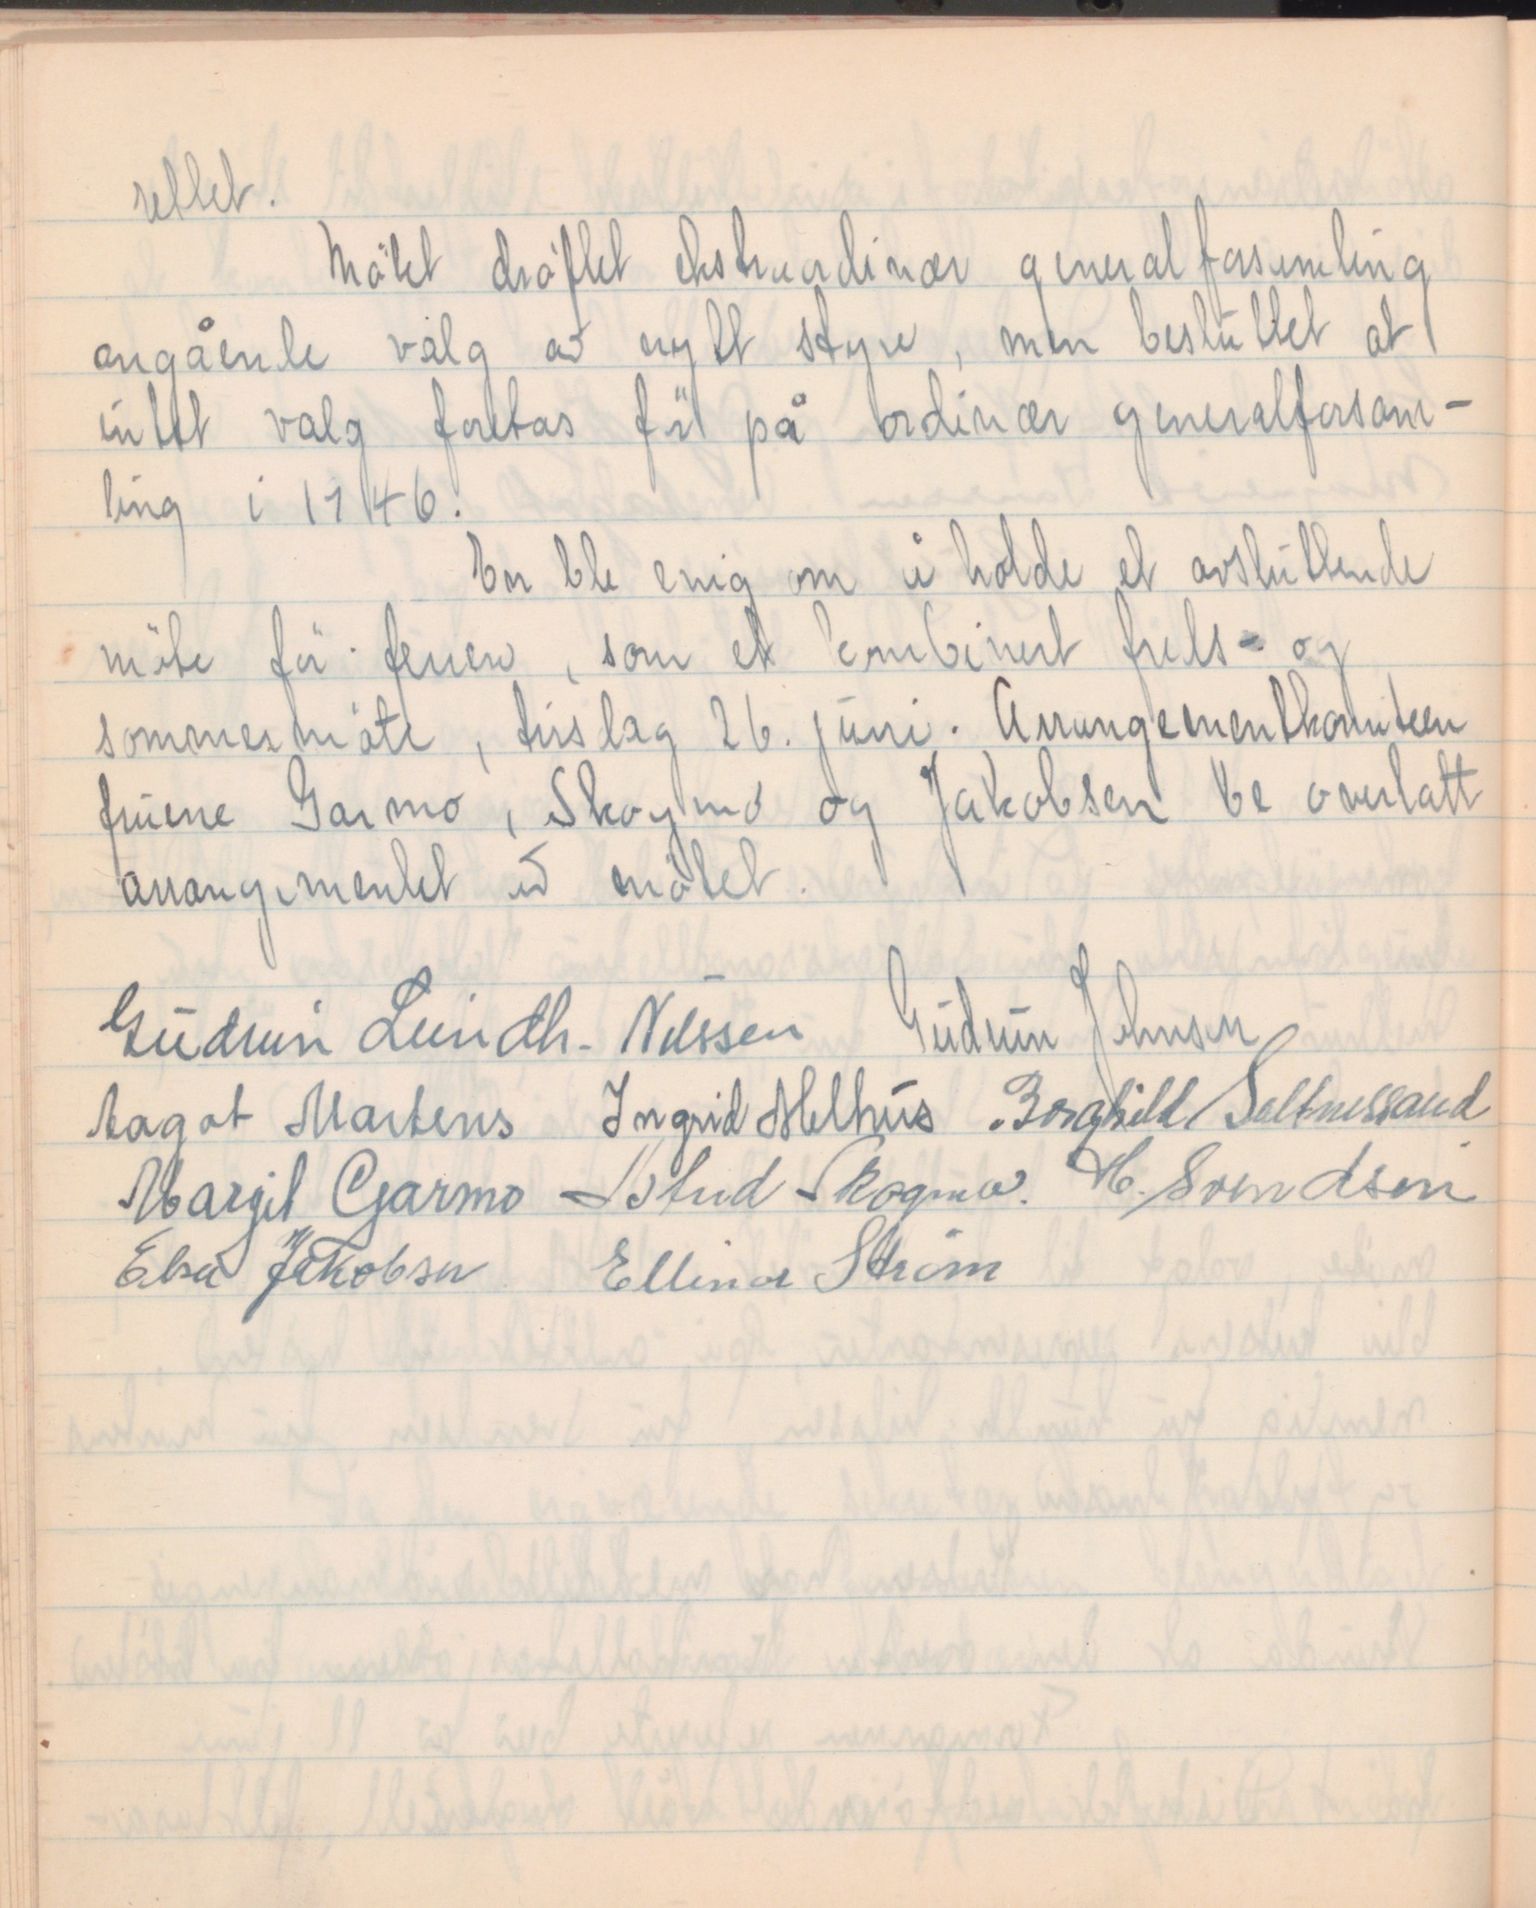 rettet.
Møtet drøftet ekstraordinær generalforsamling
angående valg av nytt styre, men besluttet at
intet valg foretas før på ordinær generalforsam-
ling i 1946.
En ble enig om å holde et avsluttende
møte før ferien, som et kombinert freds- og
sommermøte, tirsdag 26. juni. Arrangementkomiteen
fruene Garmo, Skogmo og Jakobsen ble overlatt
arrangementet av møtet.
Gudrun Lundh-Nilssen Gudrun Johnsen
Aagot Martens Ingrid Melhus Borghild Saltnessand
Margit Garmo Astrid Skogmo. H. Svendsen
Elsa Jakobsen Ellinor Strøm